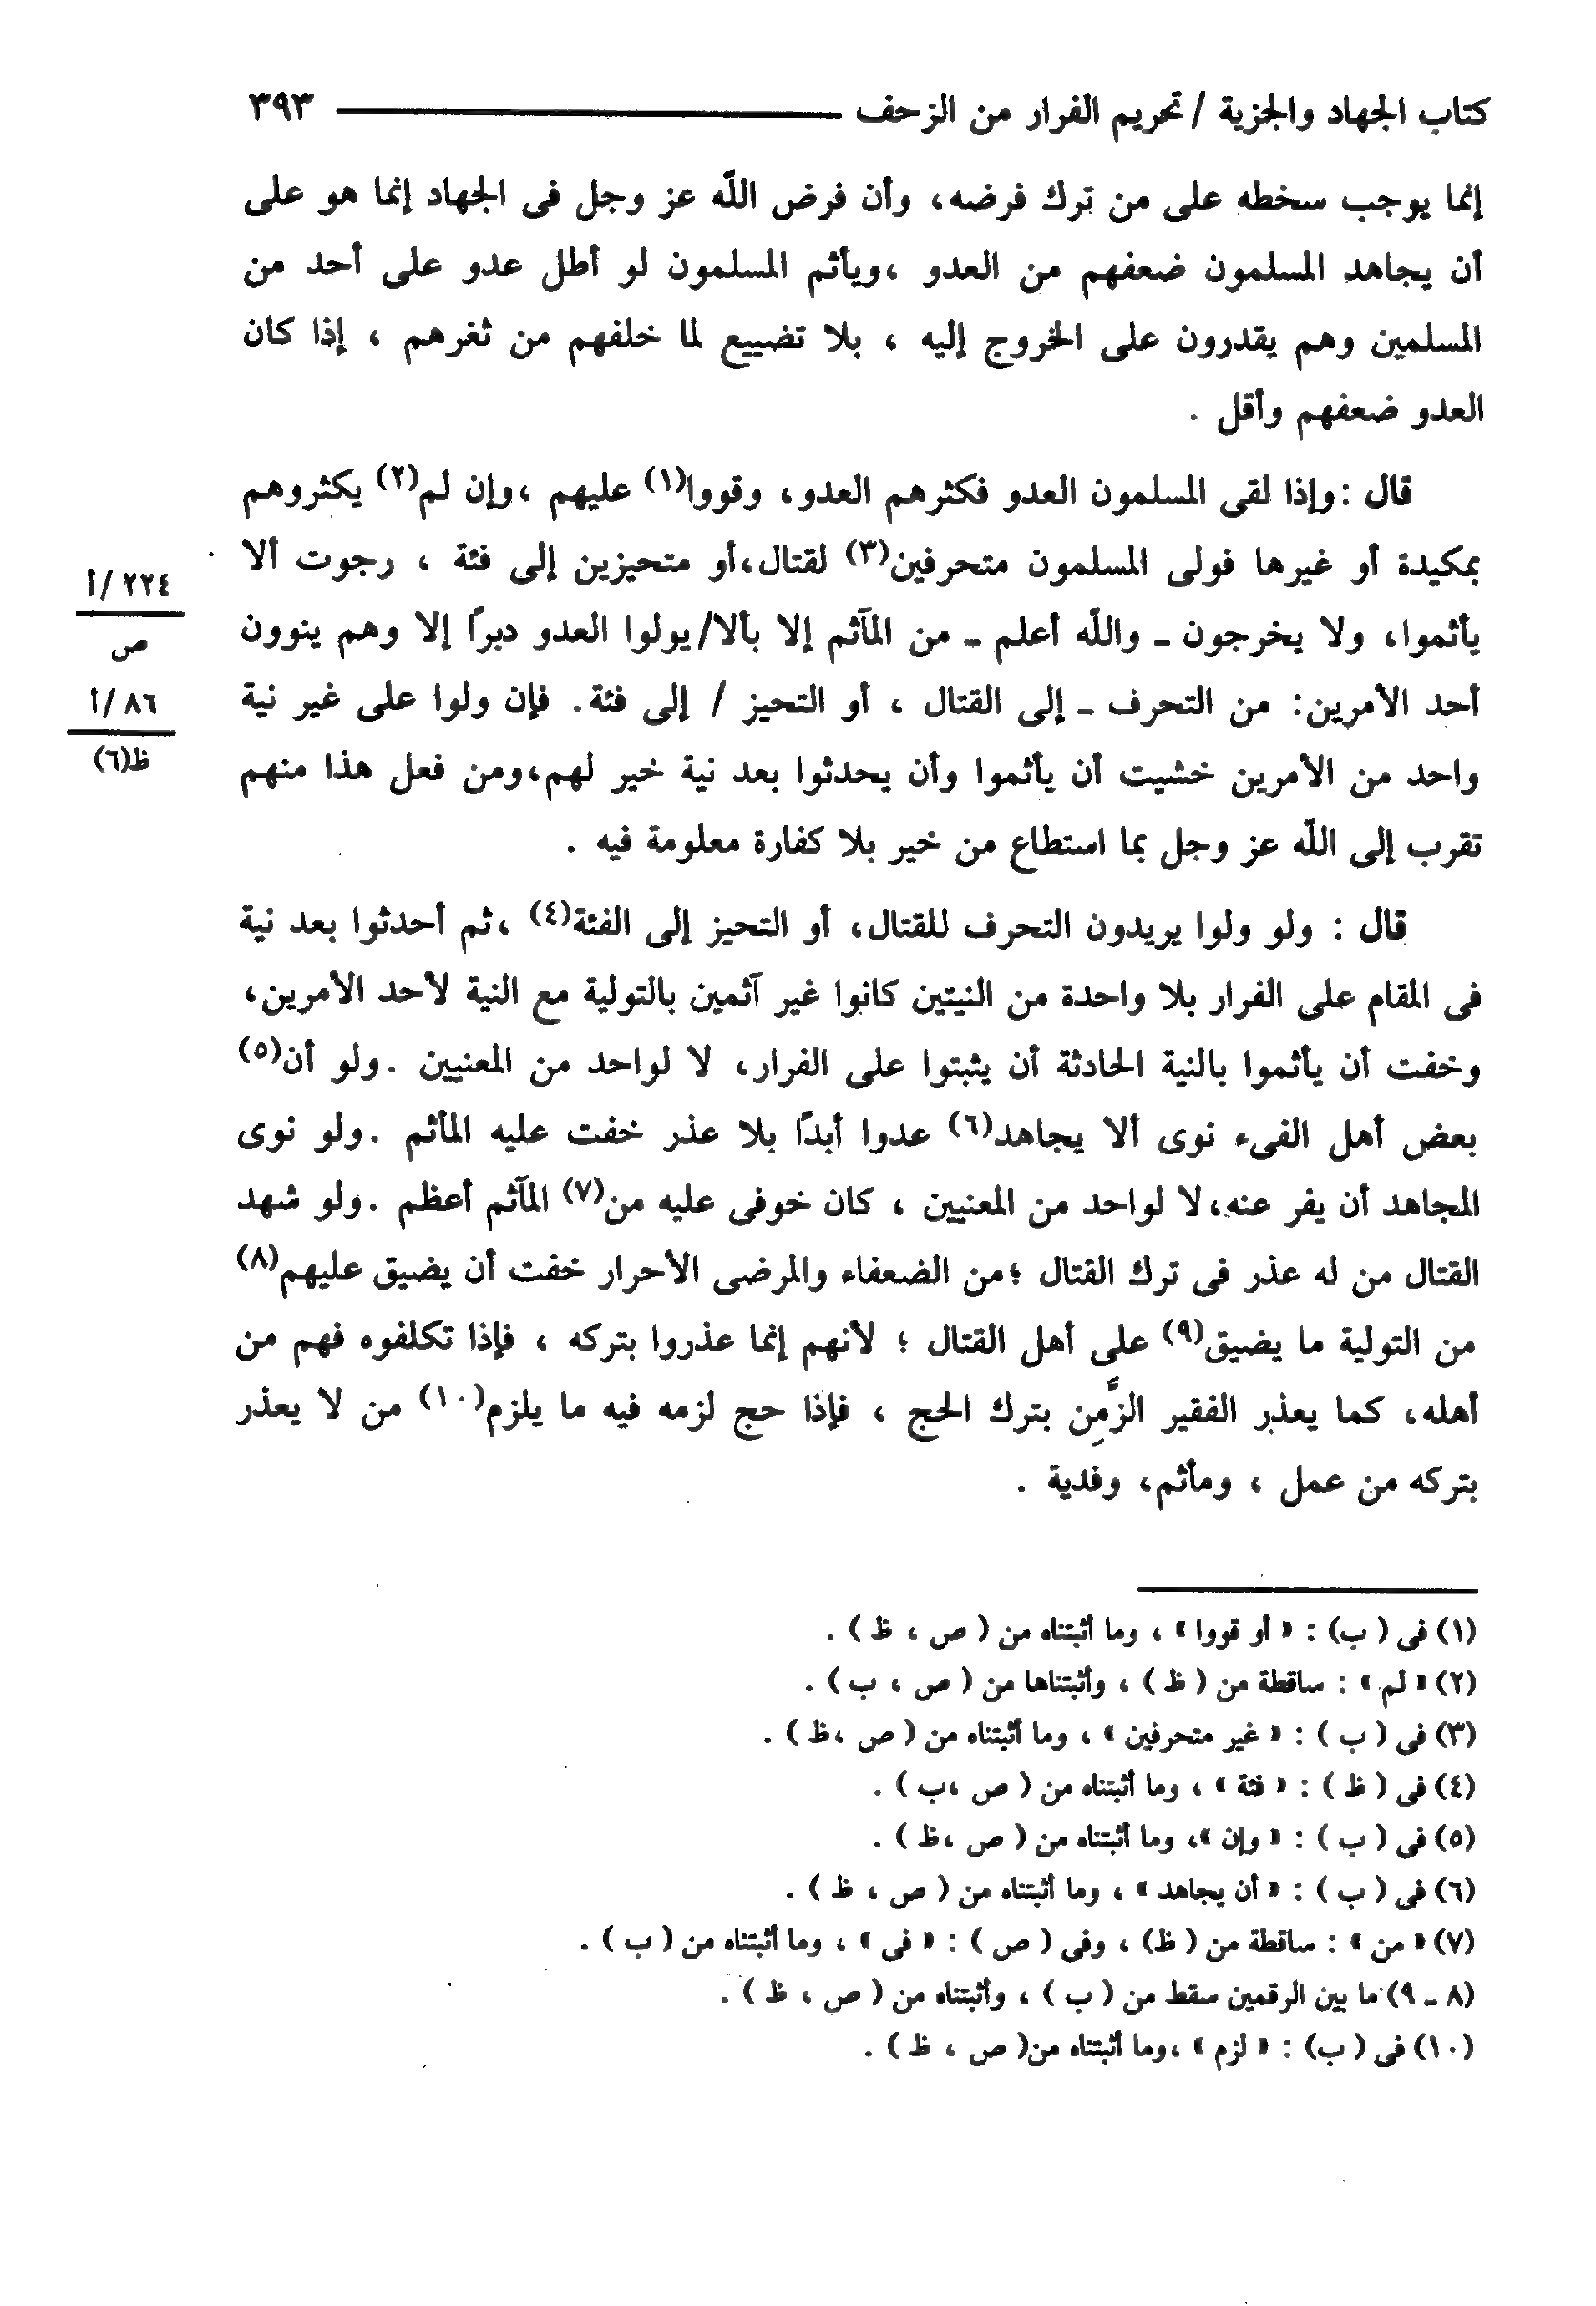 كتاب الجهاد والجزية / تحريم الفرار من الزحف ٣٩٣
إنما يوجب سخطه على من ترك فرضه، وأن فرض اللّه عز وجل فى الجهاد إنما هو على
أن يجاهد المسلمون ضعفهم من العدو ،ويأثم المسلمون لو أطل عدو على أحد من
المسلمين وهم يقدرون على الخروج إليه ، بلا تضييع لما خلفهم من ثغرهم ، إذا كان
العدو ضعفهم وأقل .
قال :وإذا لقى المسلمون العدو فكثرهم العدو، وقووا(١) عليهم ،وإن لم(٢) يكثروهم
بمكيدة أو غيرها فولى المسلمون متحرفين(٣) لقتال،أو متحيزين إلى فئة ، رجوت ألا
يأثموا، ولا يخرجون ـ واللّه أعلم ـ من المآثم إلا بألا/يولوا العدو دبرًا إلا وهم ينوون
أحد الأمرين: من التحرف ـ إلى القتال ، أو التحيز / إلى فئة. فإن ولوا على غير نية
واحد من الأمرين خشيت أن يأثموا وأن يحدثوا بعد نية خير لهم،ومن فعل هذا منهم
تقرب إلى اللّه عز وجل بما استطاع من خير بلا كفارة معلومة فيه .
٢٢٤ /أ
ص
٨٦ /أ
ظ(٦)
قال : ولو ولوا يريدون التحرف للقتال، أو التحيز إلى الفئة(٤) ،ثم أحدثوا بعد نية
فى المقام على الفرار بلا واحدة من النيتين كانوا غير آثمين بالتولية مع النية لأحد الأمرين،
وخفت أن يأثموا بالنية الحادثة أن يثبتوا على الفرار، لا لواحد من المعنيين .ولو أن(٥)
بعض أهل الفىء نوى ألا يجاهد(٦) عدوا أبدًا بلا عذر خفت عليه المأثم .ولو نوى
المجاهد أن يفر عنه،لا لواحد من المعنيين ، كان خوفى عليه من(٧) المآثم أعظم .ولو شهد
القتال من له عذر فى ترك القتال ؛من الضعفاء والمرضى الأحرار خفت أن يضيق عليهم(٨)
من التولية ما يضيق(٩) على أهل القتال ؛ لأنهم إنما عذروا بتركه ، فإذا تكلفوه فهم من
أهله، كما يعذر الفقير الزَّمِن بترك الحج ، فإذا حج لزمه فيه ما يلزم(١٠) من لا يعذر
بتركه من عمل ، ومأثم، وفدية .
(١) فى ( ب) : « أو قووا » ، وما أثبتناه من ( ص ، ظ ) .
(٢) « لم » : ساقطة من ( ظ ) ، وأثبتناها من ( ص ، ب ) .
(٣) فى ( ب ) : « غير متحرفين » ، وما أثبتناه من ( ص ،ظ ) .
(٤) فى ( ظ ) : « فئة » ، وما أثبتناه من ( ص ،ب ) .
(٥) فى ( ب ) : « وإن »، وما أثبتناه من ( ص ،ظ ) .
(٦) فى ( ب ) : « أن يجاهد » ، وما أثبتناه من ( ص ، ظ ) .
(٧) « من » : ساقطة من ( ظ) ، وفى ( ص ) : « فى » ، وما أثبتناه من ( ب ) .
(٨ ـ ٩) ما بين الرقمين سقط من ( ب ) ، وأثبتناه من ( ص ، ظ ) .
(١٠) فى ( ب) : « لزم » ،وما أثبتناه من( ص ، ظ ) .